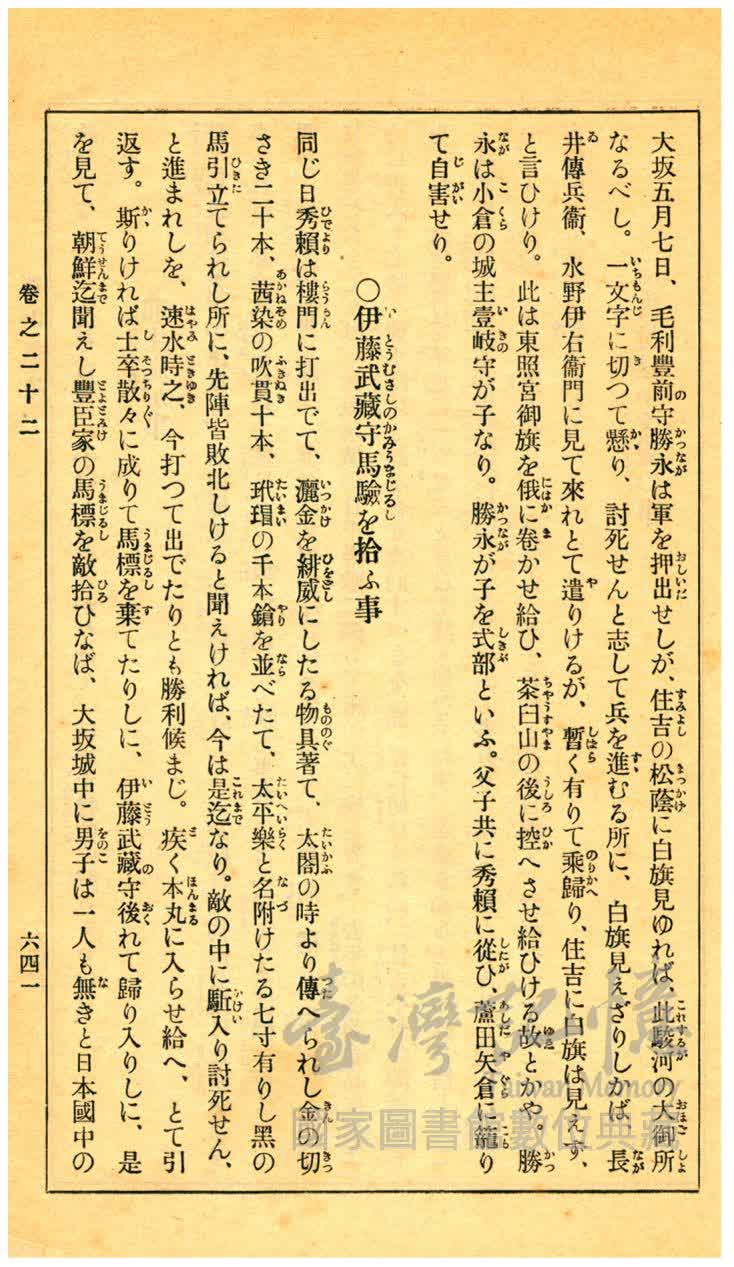 大坂五月七日、毛利豊前守勝永は軍を押出せしが、住吉の松蔭に白旗見ゆれば、此駿河の大御所
なるべし。一文字に切つて懸り、討死せんと志して兵を進むる所に、白旗見えざりしかば、長
井傳兵衞、水野伊右衞門に見て來れとて遣りけるが、暫く有りて乘歸り、住吉に白旗は見えず、
と言ひけり。此は東照宮御旗を俄に卷かせ給ひ、茶臼山の後に控へさせ給ひける故とかや。勝
永は小倉の城主壹岐守が子なり。勝永が子を式部といふ。父子共に秀賴に從ひ、蘆田矢倉に籠り
て自害せり。
〇伊藤武藏守馬驗を拾ふ事
同じ日秀賴は樓門に打出でて、灑金を緋威にしたる物具著て、太閤の時より傳へられし金の切
さき二十本、茜染の吹貫十本、玳瑁の千本鎗を並べたて、太平樂と名附けたる七寸有りし黑の
馬引立てられし所に、先陣皆敗北しけると聞えければ、今は是迄なり。敵の中に駈入り討死せん、
と進まれしを、速水時之、今打つて出でたりとも勝利候まじ。疾く本丸に入らせ給へ、とて引
返す。斯りければ士卒散々に成りて馬標を棄てたりしに、伊藤武藏守後れて歸り入りしに、是
を見て、朝鮮迄聞えし豐臣家の馬標を敵拾ひなば、大坂城中に男子は一人も無きと日本國中の
卷之二十二
六四一
臺灣記憶
Taiwan Memory
國家圖書館數位典藏